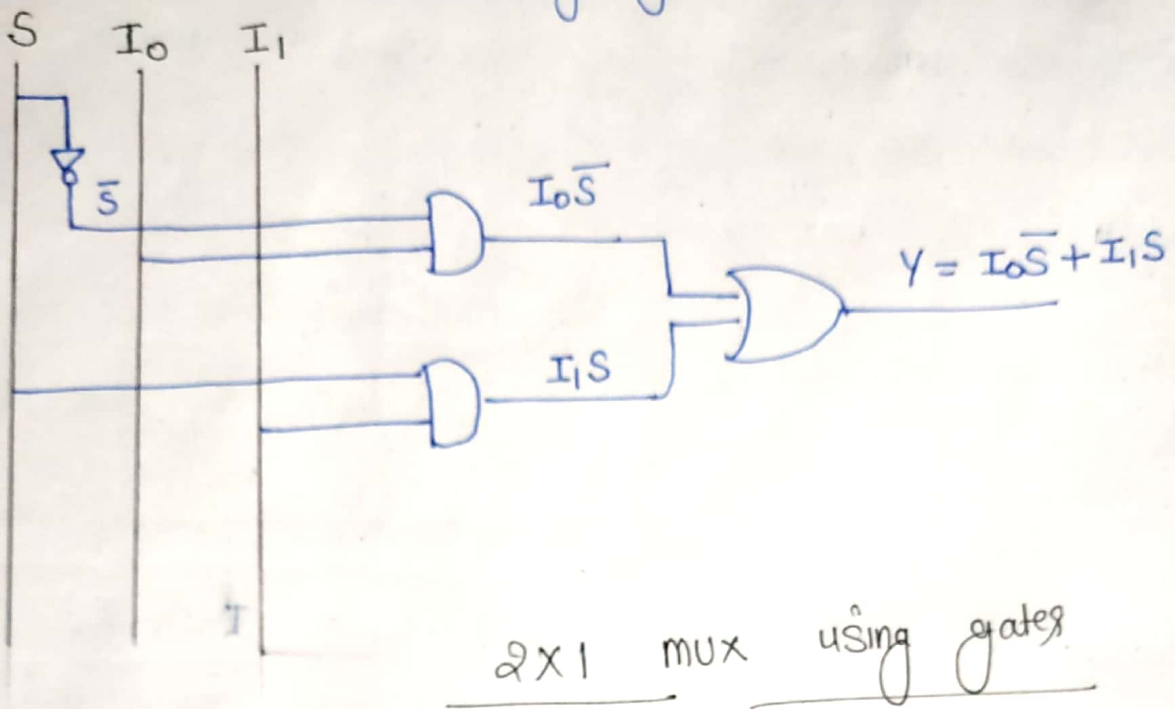 S I₀ I₁
S̅
I₀S̅
Y = I₀S̅ + I₁S
I₁S
2X1 mux using gates